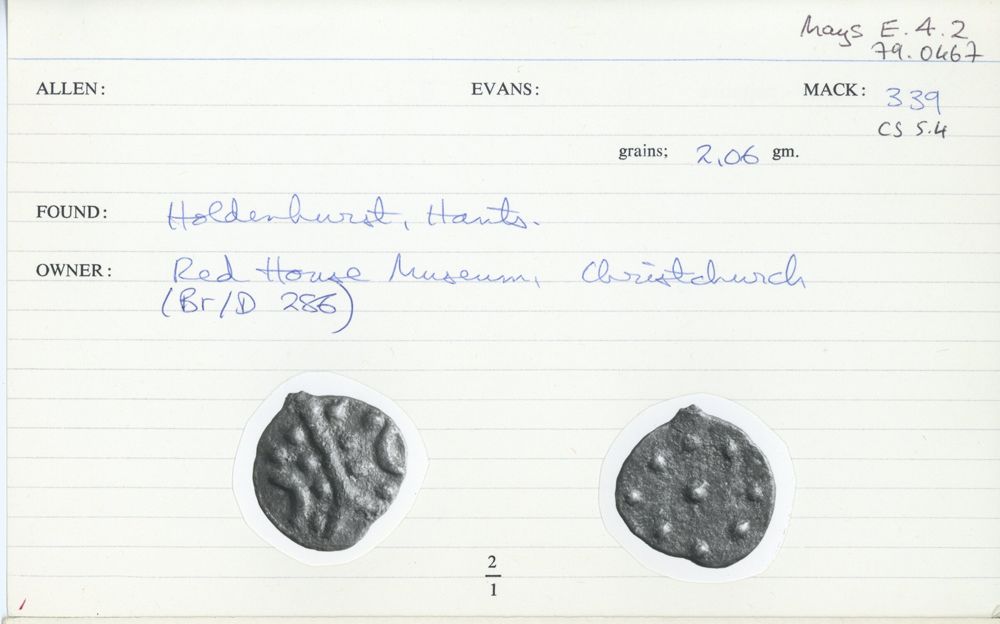 Mays E.4.2
79.0467
ALLEN: EVANS: MACK: 339
CS 5.4
grains; 2,06 gm.
FOUND: Holdenhurst, Hants.
OWNER: Red House Museum, Christchurch
(Br/D 286)
2
1